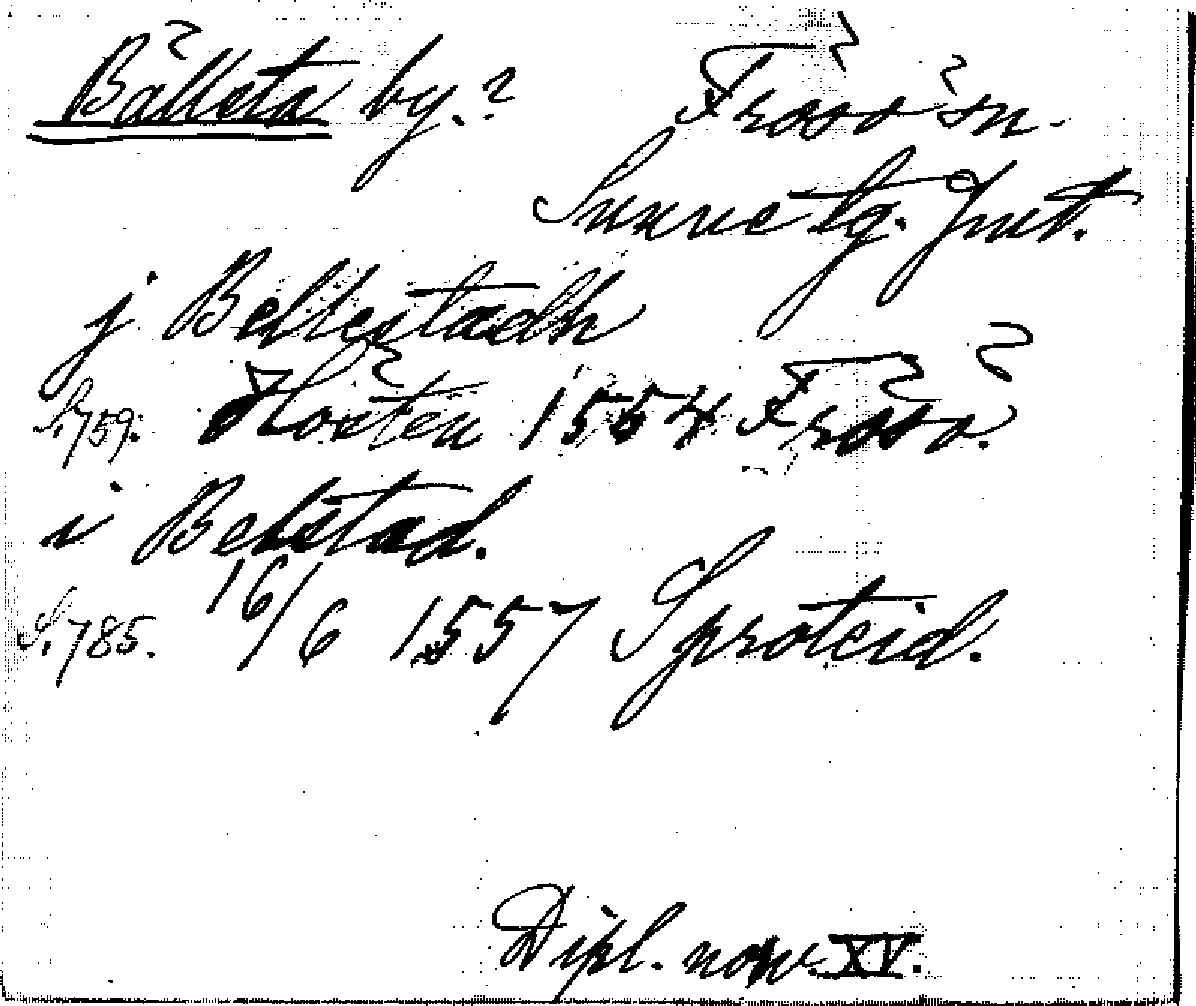 Bällsta by.? Frösö sn.
Sunne tg. Jmt.
j Bellestadh
S. 759. Hösten 1554 Frösö.
i Belstad.
S. 785. 16/6 1557 Sproteid.
Dipl. norv. XV.